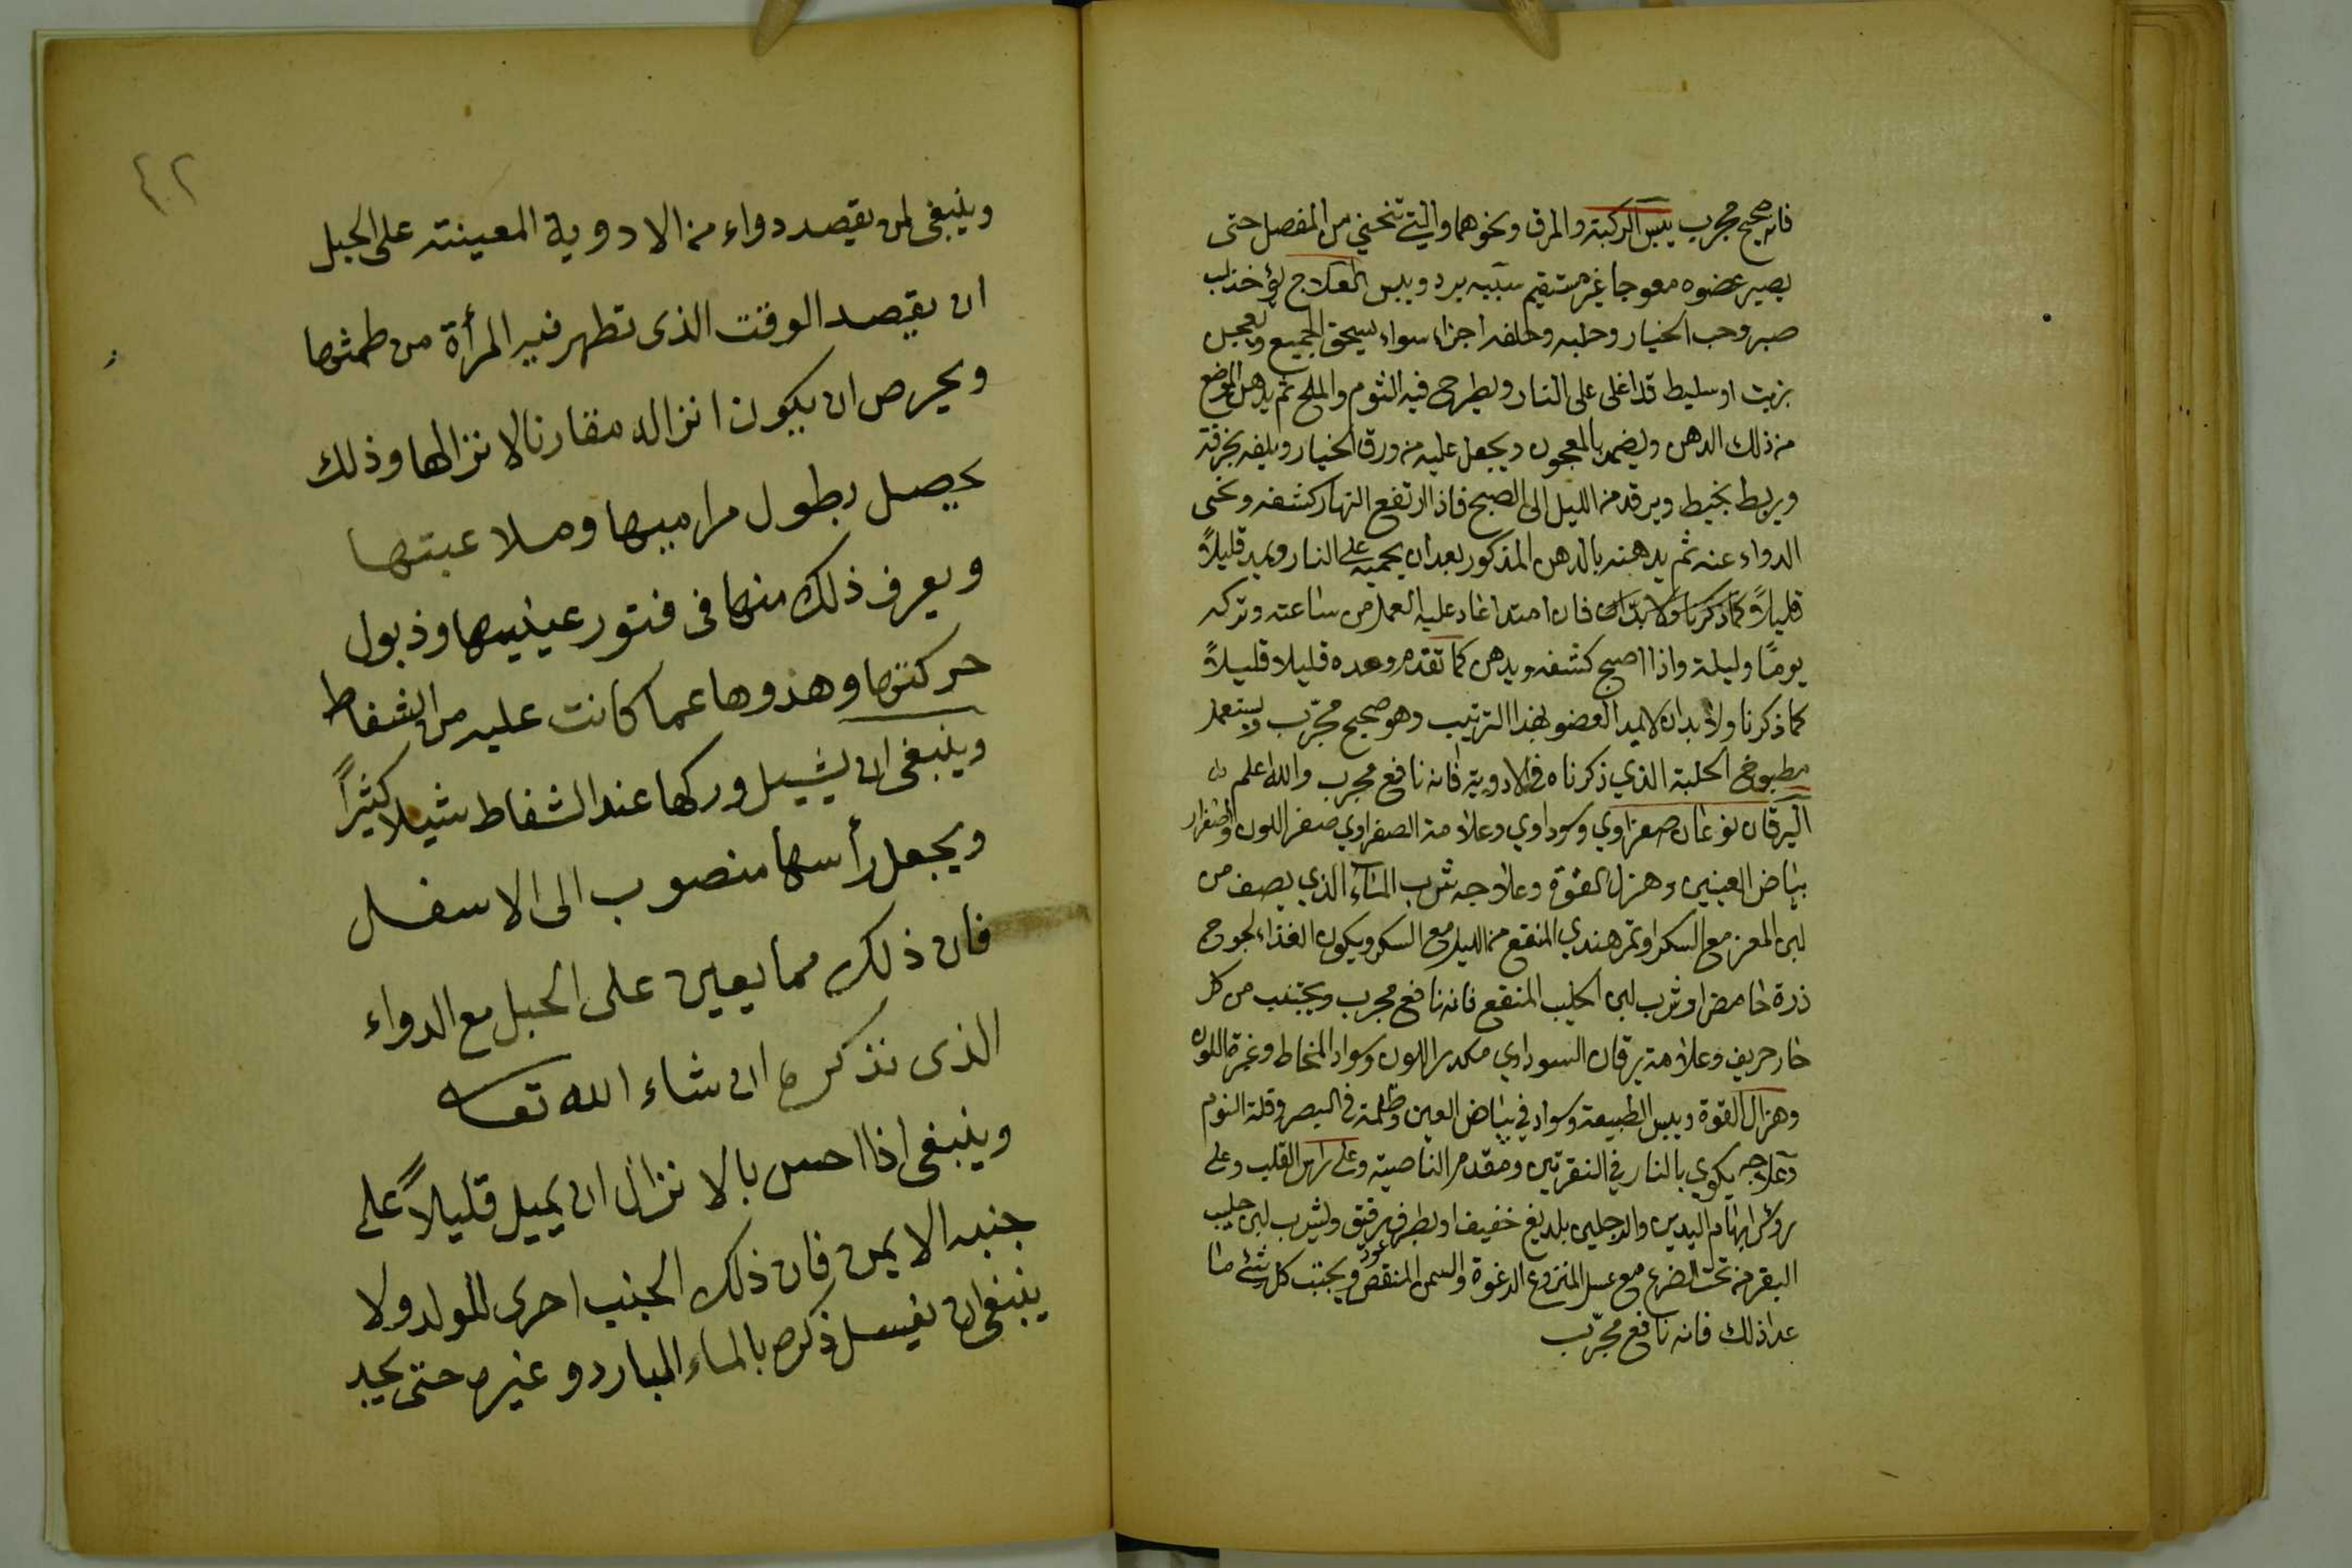 فانه صحيح مجرب يبس الركبة والمرفق ونحوهما والتي تنحني من المفصل حتى
يصير عضوه معوجا غير مستقيم سببه برد ويبس العلاج يؤخذ لب
صبر وحب الخيار وحلبه وحلفه اجزاء سواء يسحق الجميع ويعجن
بزيت او سليط قد اغلى على النار ويطرح فيه الثوم والملح ثم يدهن الموضع
من ذلك الدهن ويضمد بالمعجون ويجعل عليه من ورق الخيار ويلفه بخرقة
ويربط بخيط ويرقد من الليل الى الصبح فاذا ارتفع النهار كشفه ونحى
الدواء عنه ثم يدهنه بالدهن المذكور بعد ان يحميه على النار ويمد قليلاً
قليلاً كما ذكرنا ولا بد ان فان امتد اعاد عليه العمل من ساعته وتركه
يومًا وليلة واذا اصبح كشفه ويدهن كما تقدم ومده قليلا قليلاً
كما ذكرنا ولا بد ان لا يمد العضو بهذا الترتيب وهو صحيح مجرّب ويستعمل
مطبوخ الحلبة الذي ذكرناه في الادوية فانه نافع مجرب والله اعلم
اليرقان نوعان صفراوي وسوداوي وعلامة الصفراوي صفر اللون واصفرار
بياض العينين وهزل القوة وعلاجه شرب الماء الذي يصف من
لبن المعز مع السكر او تمر هندي المنقع من الليل مع السكر ويكون الغذاء لجوح
ذرة حامض او شرب لبن الحليب المنقع فانه نافع مجرب ويجتنب من كل
حار حريف وعلامة يرقان السوداوي مكدر اللون وسواد المخاط وغبرة اللون
وهزال القوة ويبس الطبيعة وسواد في بياض العين وظلمة في البصر وقلة النوم
وعلاجه يكوي بالنار في النقرتين ومقدم الناصية وعلى راس القلب وعلى
روس ابهام اليدين والرجلين بلديغ خفيف او بطرف رقيق ويشرب لبن حليب
البقر من تحت الضرع مع عسل المنزوع الرغوة والسمن المنقص عود ويجتنب كل شئ ما
عدا ذلك فانه نافع مجرّب
٤٢
وينبغى لمن يقصد دواء من الادوية المعينة على الحبل
ان يقصد الوقت الذى تطهر فيه المرأة من طمثها
ويحرص ان يكون انزاله مقارنا لانزالها وذلك
يحصل بطول مراميها وملاعبتها
ويعرف ذلك منها فى فتور عينيها وذبول
حركتها وهذوها عما كانت عليه من الشفاط
وينبغى ان يشيل وركها عند الشفاط شيلا كثيراً
ويجعل رأسها منصوب الى الاسفل
فان ذلك مما يعين على الحبل مع الدواء
الذى نذكره ان شاء الله تعا
وينبغى اذا احس بالانزال ان يميل قليلاً على
جنبه الايمن فان ذلك الجنب احرى للولد ولا
ينبغى ان يغسل ذكره بالماء البارد وغيره حتى يجد